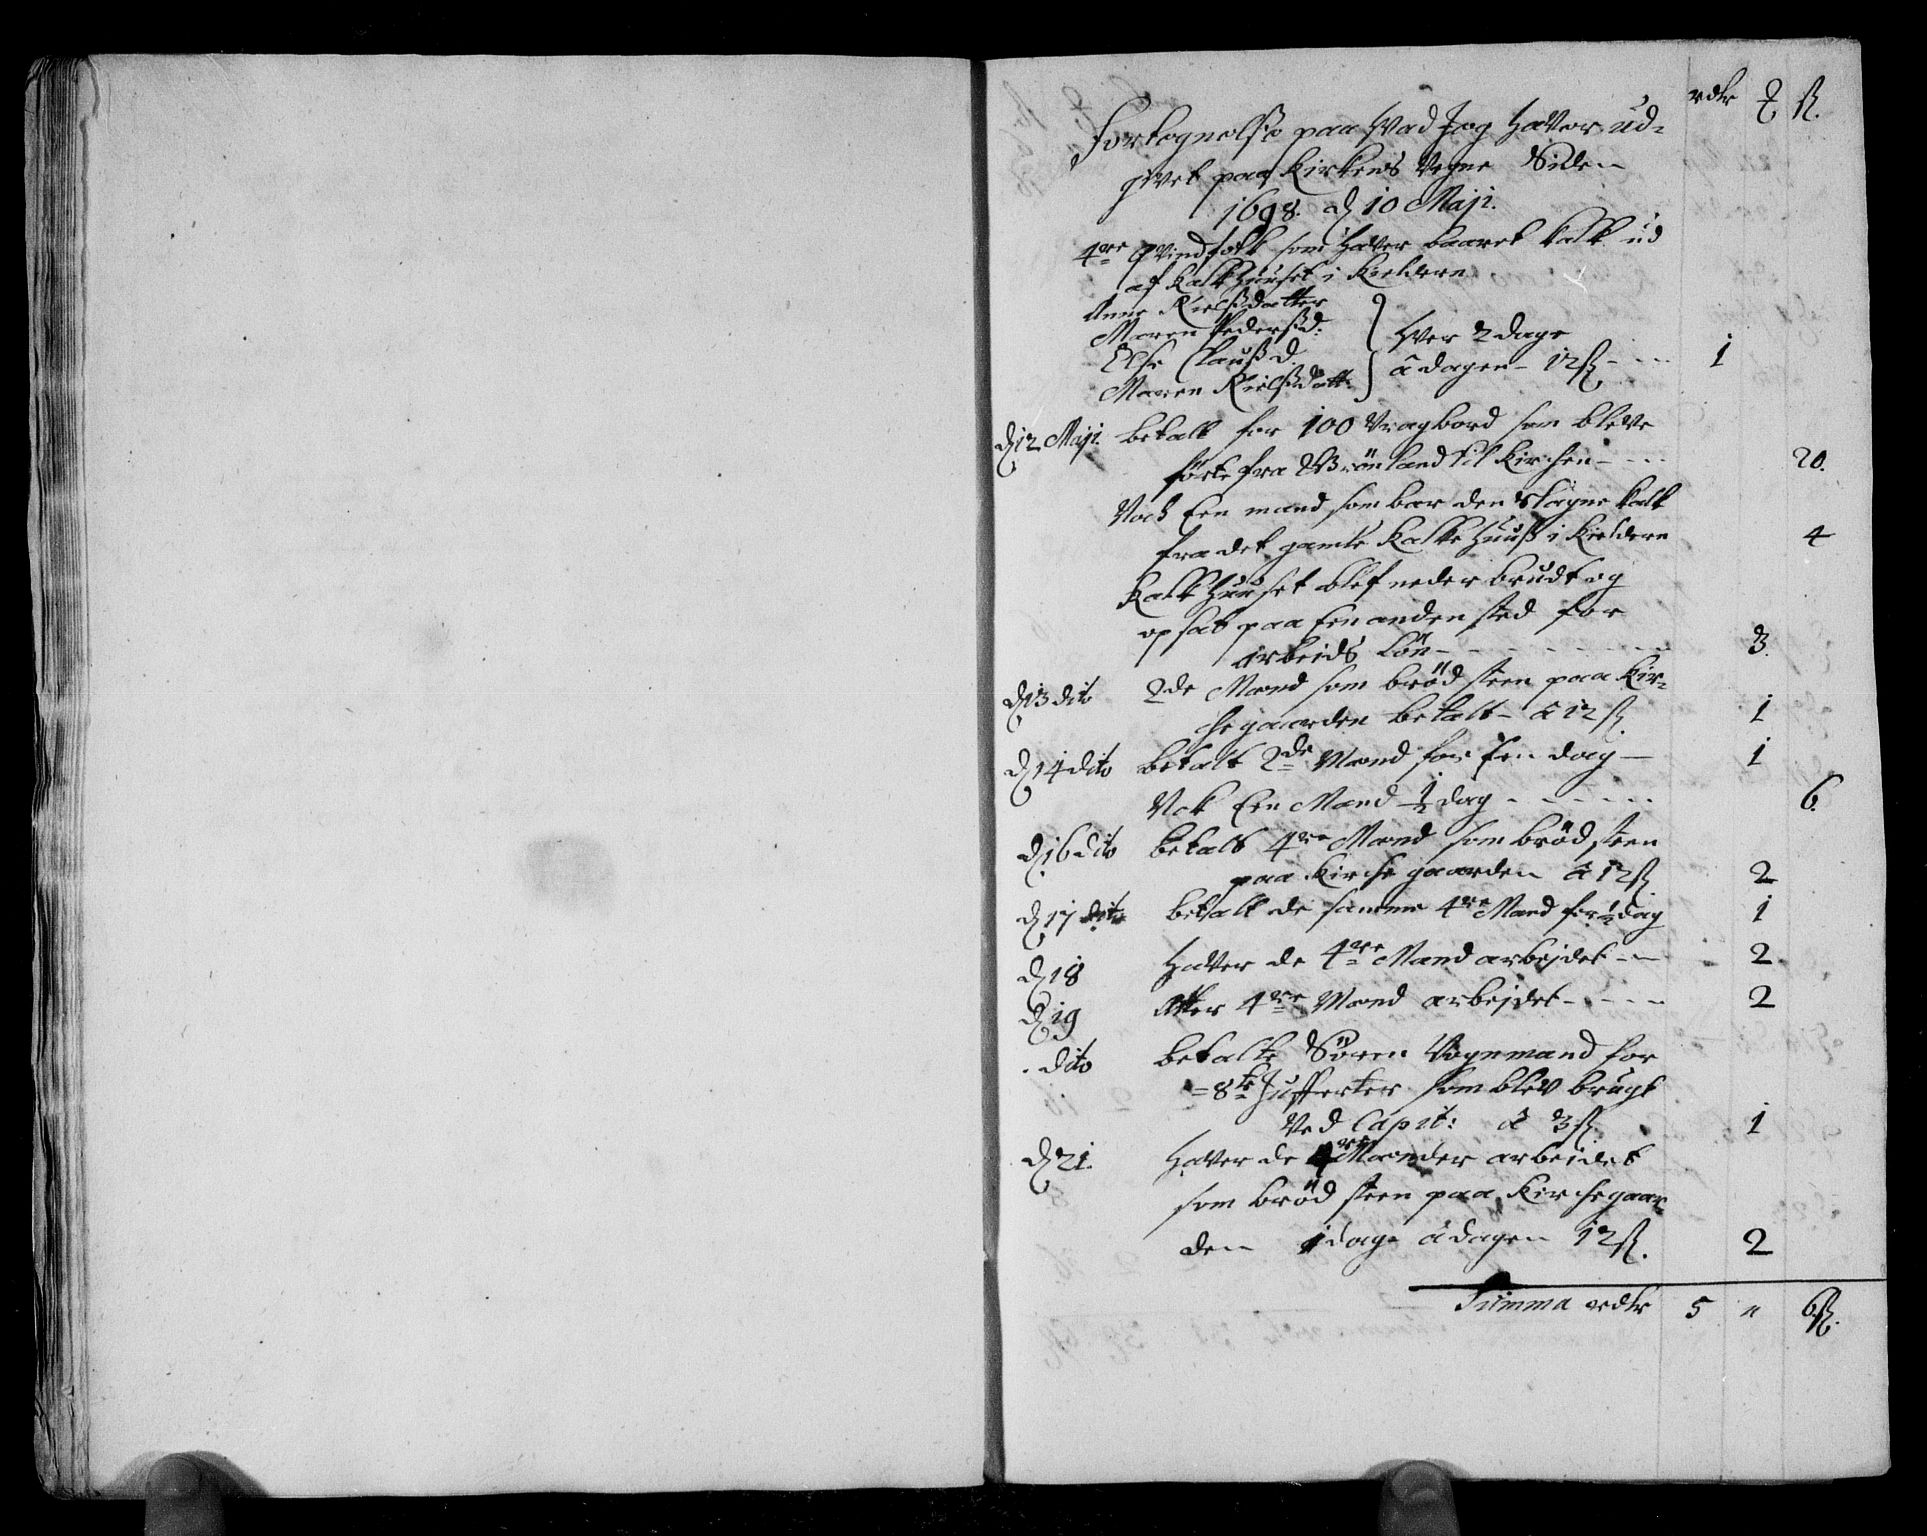 rdlr ƺ ß.
Fortegnelse paa Hvad Jeg Haver ud-
givet paa Kirkens Vegne Siden
1698. d 10 Maji.
4re qvindfolk som Haver baaret Kalk ud
af Kalkhuuset i Kieldern
Anne Nielsdatter
Maren Pedersd:
Else Clausd
Maren Nielsdatt.
Hver 2 dage
â dagen - 12 ß - - - 1
d 12 Maji. betalt for 100 Vragbord som bleve
förte fra Grönland til Kirchen - - - 20.
Noch Een mand som bar den slagne Kalk
fra det gamle Kalkehuuß i Kieldern 4
Kalkhuuset blef nederbrudt og
opsat paa Een anden sted for
arbeids Lön - - - - - - - 3.
d 13 dito 2de Mænd som bröd steen paa Kir-
chegaarden betalt - â 12 ß. 1
d 14 dito betalt 2de Mænd for Een dag - 1
Nok Een Mænd ½ dag - - - - - 6.
d 16 dito betalt 4re Mænd som bröd steen
paa Kirchegaarden â 12 ß 2
d 17 dito betalt de samme 4re Mænd for ½ dag 1
d 18 Haver de 4re Mænd arbejdet - - 2
d 19 Atter 4re Mænd arbejdet - - - - 2
dito betalte Sören Vognmand for
- 8te Jufferter som blev brugt
Ved Capit: â 3 ß 1
d 21. Haver de 4re Mænder arbeidet
som bröd steen paa Kirchegaar
den 1 dage â dagen 12 ß. 2
Summa rdlr 5 " 6 ß.